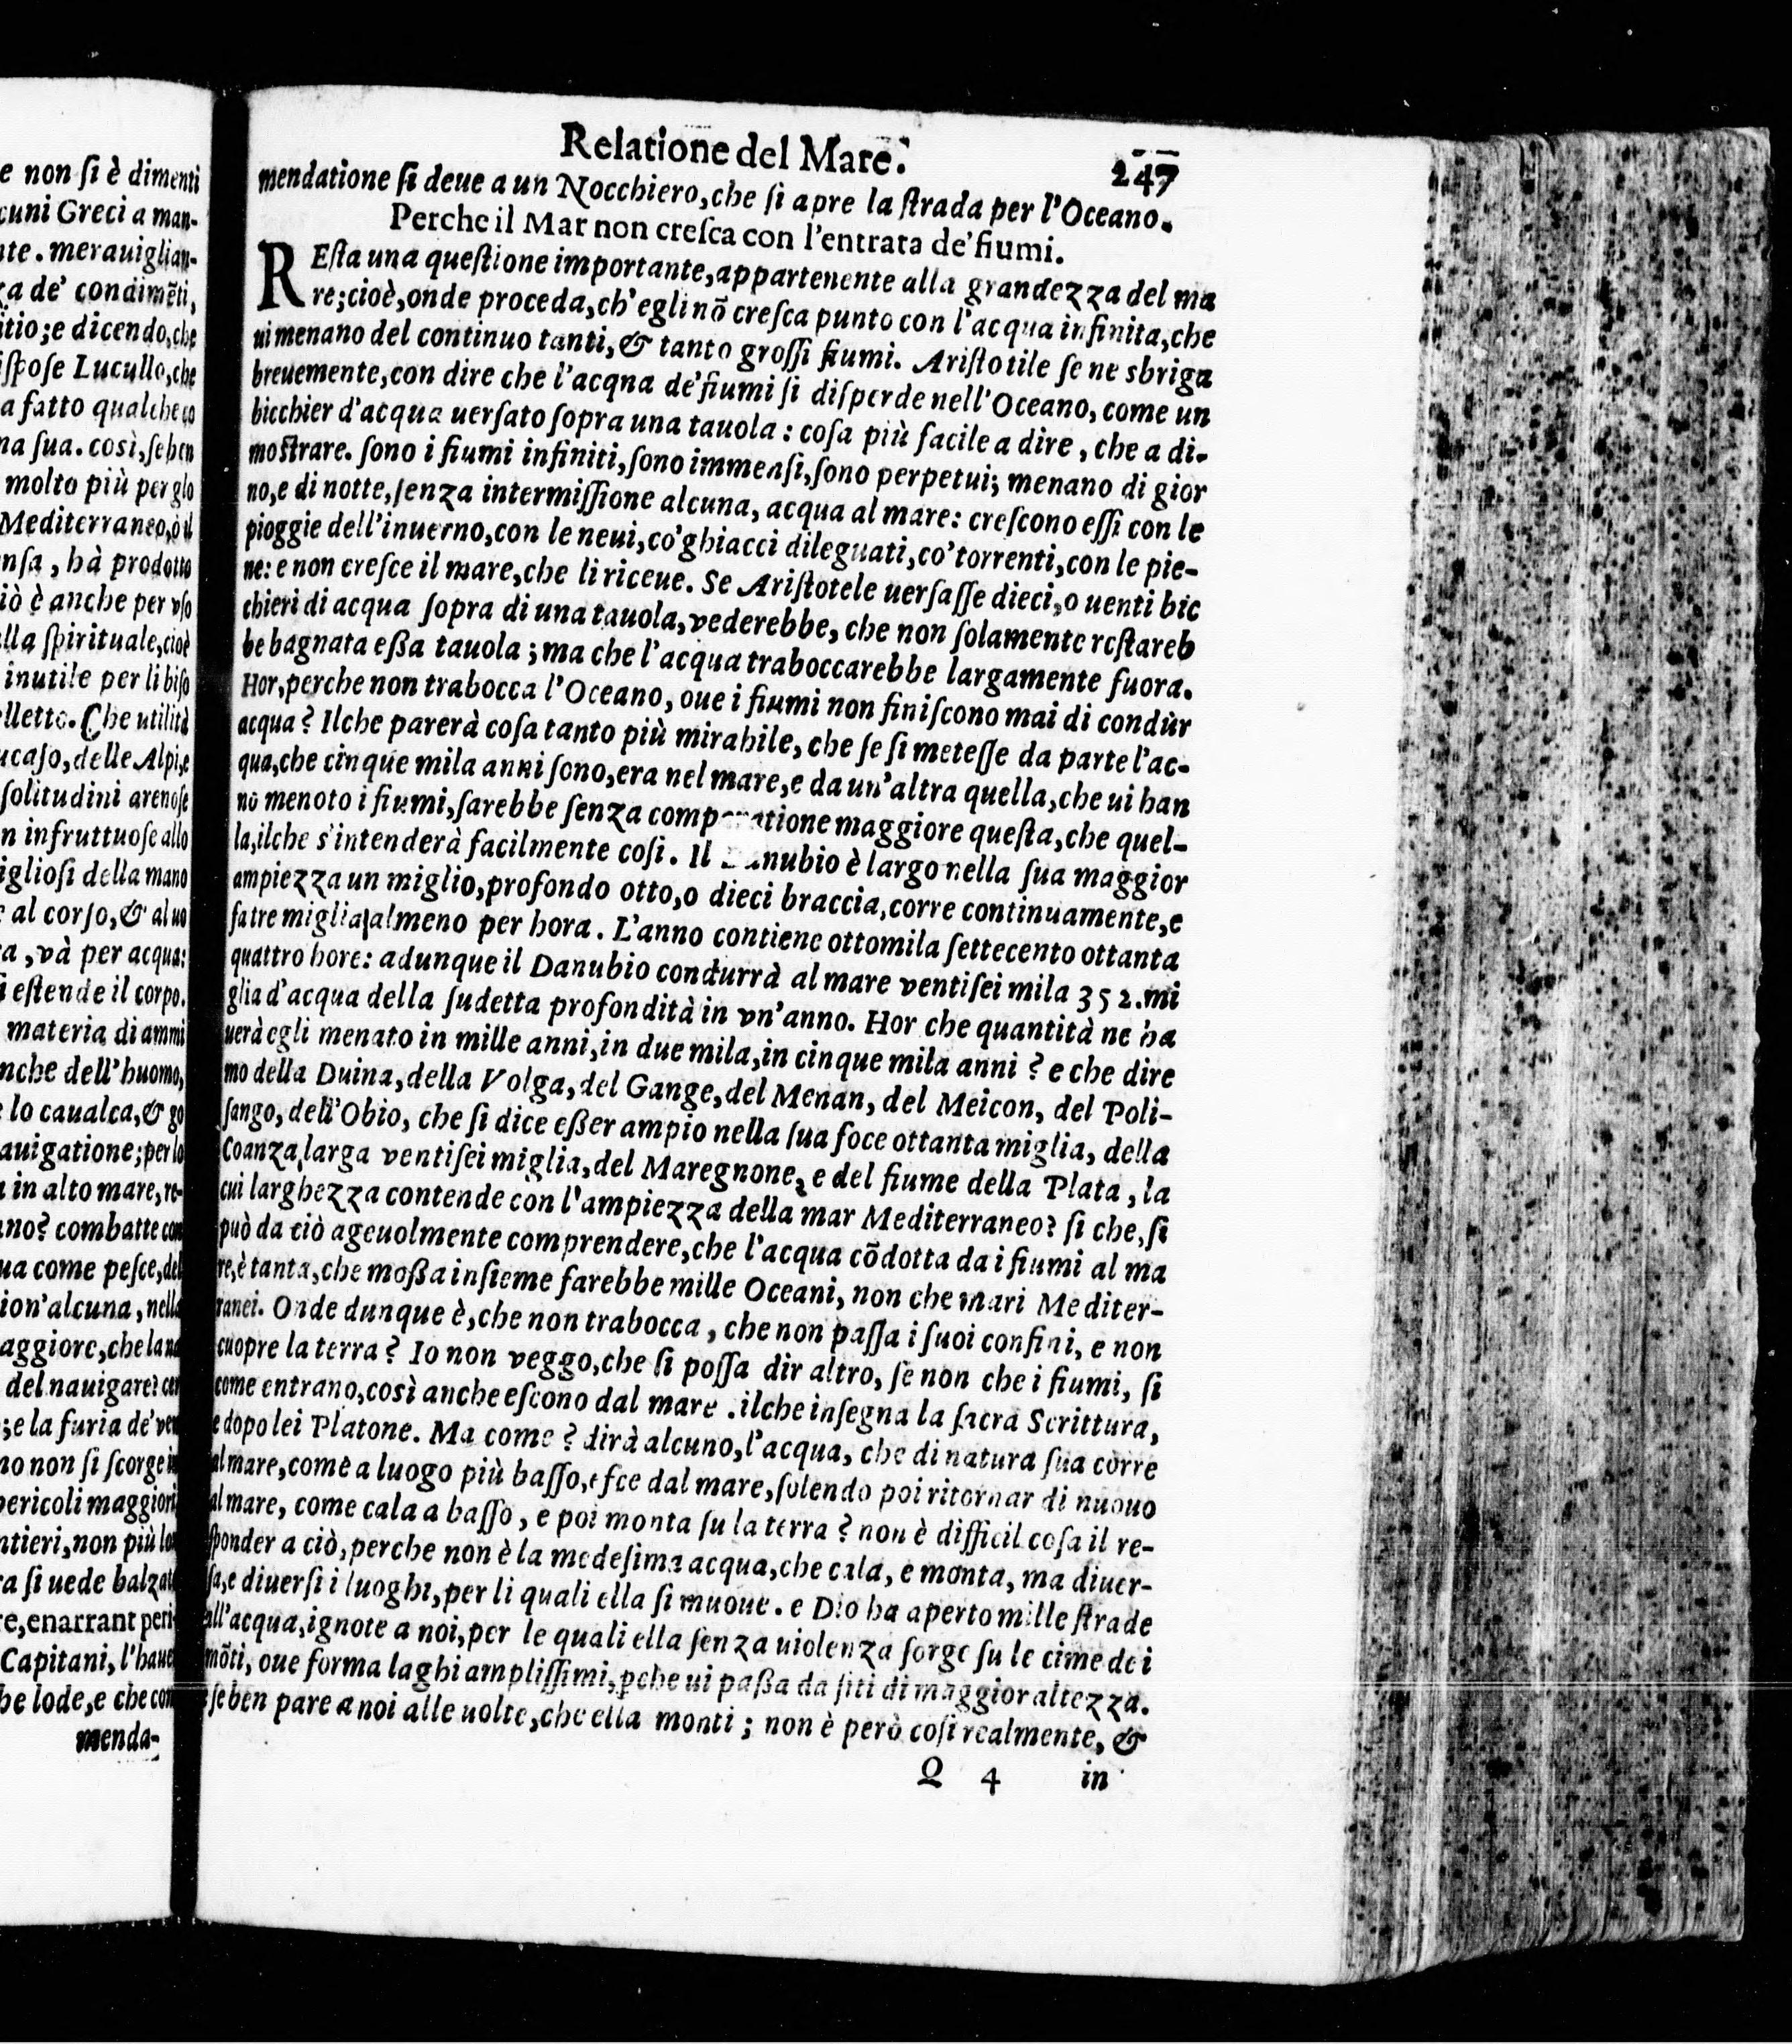 e non ſi è dimenti
cuni Greci a man-
nte. merauiglian-
za de' condimẽti,
itio; e dicendo, che
iſpoſe Lucullo, che
a fatto qualche co
na ſua. così, ſe ben
molto più per glo
Mediterraneo, ò il
enſa, hà prodotto
iò è anche per vſo
lla ſpirituale, cioè
inutile per li biſo
lletto. Che utilità
ucaſo, delle Alpi, e
ſolitudini arenoſe
n infruttuoſe allo
iglioſi della mano
e al corſo, & al uo
a, và per acqua:
ſi eſtende il corpo.
materia di ammi
nche dell'huomo,
e lo caualca, & go
auigatione; per lo
a in alto mare, re-
ano? combatte con
ua come peſce, del
ion' alcuna, nella
aggiore, che la na
del nauigare? cer
; e la furia de' ven
no non ſi ſcorge in
pericoli maggiori
ntieri, non più lon
ra ſi uede balzat
re, enarrant peri-
Capitani, l'haue
he lode, e che com
menda-
Relatione del Mare. 247
mendatione ſi deue a un Nocchiero, che ſi apre la ſtrada per l'Oceano.
Perche il Mar non creſca con l'entrata de' fiumi.
REſta una queſtione importante, appartenente alla grandezza del ma
re; cioè, onde proceda, ch'egli nõ creſca punto con l'acqua infinita, che
ui menano del continuo tanti, & tanto groſſi fiumi. Ariſtotile ſe ne sbriga
breuemente, con dire che l'acqna de' fiumi ſi diſperde nell'Oceano, come un
bicchier d'acqua uerſato ſopra una tauola: coſa più facile a dire, che a di-
moſtrare. ſono i fiumi infiniti, ſono immenſi, ſono perpetui; menano di gior
no, e di notte, ſenza intermiſſione alcuna, acqua al mare: creſcono eſſi con le
pioggie dell'inuerno, con le neui, co' ghiacci dileguati, co' torrenti, con le pie-
ne: e non creſce il mare, che li riceue. Se Ariſtotele uerſaſſe dieci, o uenti bic
chieri di acqua ſopra di una tauola, vederebbe, che non ſolamente reſtareb
be bagnata eßa tauola; ma che l'acqua traboccarebbe largamente fuora.
Hor, perche non trabocca l'Oceano, oue i fiumi non finiſcono mai di condùr
acqua? Ilche parerà coſa tanto più mirabile, che ſe ſi meteſſe da parte l'ac-
qua, che cinque mila anni ſono, era nel mare, e da un'altra quella, che ui han
nò menoto i fiumi, ſarebbe ſenza comparatione maggiore queſta, che quel-
la, ilche s'intenderà facilmente coſi. Il Danubio è largo nella ſua maggior
ampiezza un miglio, profondo otto, o dieci braccia, corre continuamente, e
fa tre miglia almeno per hora. L'anno contiene ottomila ſettecento ottanta
quattro hore: adunque il Danubio condurrà al mare ventiſei mila 352. mi
glia d'acqua della ſudetta profondità in vn'anno. Hor che quantità ne ha
uerà egli menato in mille anni, in due mila, in cinque mila anni? e che dire
mo della Duina, della Volga, del Gange, del Menan, del Meicon, del Poli-
ſango, dell'Obio, che ſi dice eßer ampio nella ſua foce ottanta miglia, della
Coanza, larga ventiſei miglia, del Maregnone, e del fiume della Plata, la
cui larghezza contende con l'ampiezza della mar Mediterraneo? ſi che, ſi
può da ciò ageuolmente comprendere, che l'acqua cõdotta da i fiumi al ma
re, è tanta, che moßa inſieme farebbe mille Oceani, non che mari Mediter-
ranei. Onde dunque è, che non trabocca, che non paſſa i ſuoi confini, e non
cuopre la terra? Io non veggo, che ſi poſſa dir altro, ſe non che i fiumi, ſi
come entrano, così anche eſcono dal mare. ilche inſegna la ſacra Scrittura,
e dopo lei Platone. Ma come? dirà alcuno, l'acqua, che di natura ſua corre
al mare, come a luogo più baſſo, eſce dal mare, ſolendo poi ritornar di nuouo
al mare, come cala a baſſo, e poi monta ſu la terra? non è difficil coſa il re-
ſponder a ciò, perche non è la medeſima acqua, che cala, e monta, ma diuer-
ſa, e diuerſi i luoghi, per li quali ella ſi muoue. e Dio ha aperto mille ſtrade
all'acqua, ignote a noi, per le quali ella ſenza uiolenza ſorge ſu le cime dei
mõti, oue forma laghi ampliſſimi, ꝑche ui paßa da ſiti di maggior altezza.
e ſe ben pare a noi alle uolte, che ella monti; non è però coſi realmente, &
Q 4 in